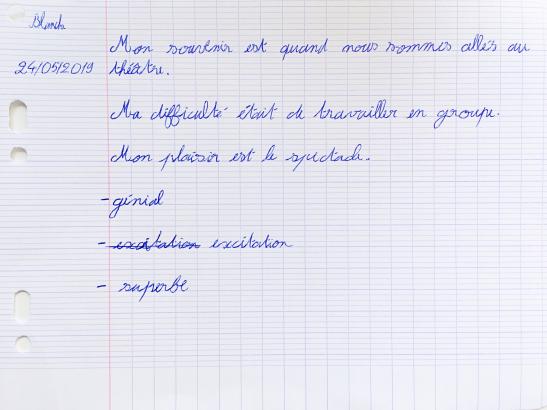 Mon souvenir est quand nous sommes allés au
24/05/2019 théâtre.
Ma difficulté était de travailler en groupe.
Mon plaisir est le spectacle.
- génial
- excitation excitation
- superbe